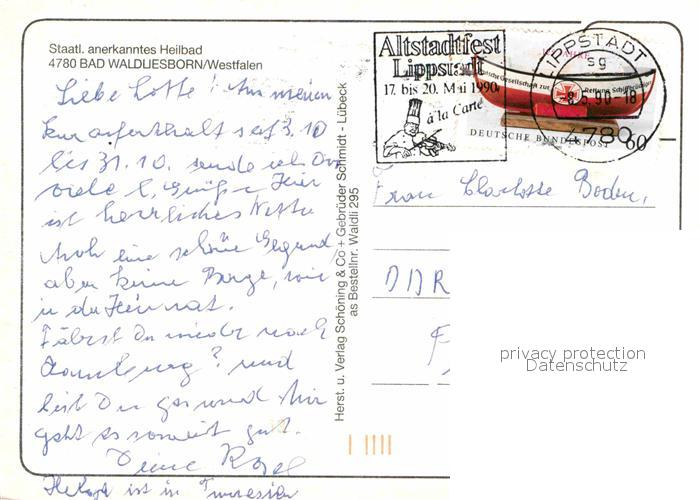 Staatl. anerkanntes Heilbad
4780 BAD WALDLIESBORN/Westfalen
Liebe Lotte! An meinem
Kuraufenthalt seit 3.10
bis 31.10. sende ich Dir
viele l. Grüße Hier
ist herrliches Wetter
Auch eine schöne Gegend,
aber keine Berge, wie
in der Heimat.
Fährst Du wieder nach
Hamburg? und
bist Du gesund Mir
geht es soweit gut.
Deine
ist in
Herst. u. Verlag Schöning & Co + Gebrüder Schmidt - Lübeck
as Bestellnr. Waldli 295
Altstadtfest
Lippstadt
17. bis 20. Mai 1990
à la Carte
LIPPSTADT
sg
5.90-18
4780
Deutsche Gesellschaft zur Rettung Schiffbrüchiger
DEUTSCHE BUNDESPOST 60
Frau Charlotte Boden,
DDR
privacy protection
Datenschutz